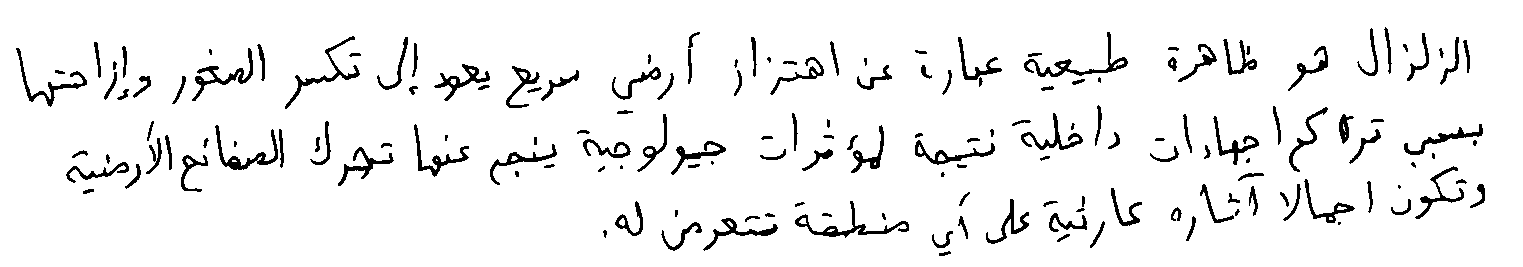 الزلزال هو ظاهرة طبيعية عبارة عن اهتزاز أرضي سريع يعود إلى تكسر الصخور وإزاحتها
بسبب تراكم اجهادات داخلية نتيجة لمؤثرات جيولوجية ينجم عنها تحرك الصفائح الأرضية
وتكون اجمالا آثاره كارثية على أي منطقة تتعرض له.